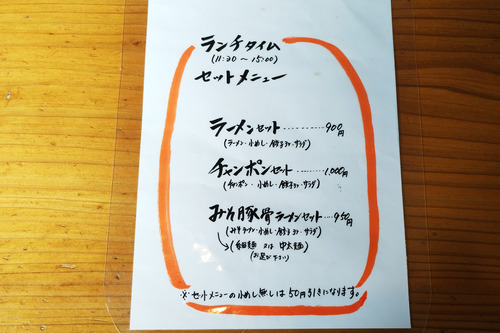 ランチタイム
(11:30 ~ 15:00)
セットメニュー
ラーメンセット ‥‥‥‥ 900円
(ラーメン・小めし・餃子3ヶ・サラダ)
チャンポンセット ‥‥‥ 1,000円
(チャンポン・小めし・餃子3ヶ・サラダ)
みそ豚骨ラーメンセット ‥‥ 950円
(みそラーメン・小めし・餃子3ヶ・サラダ)
(細麺 又は 中太麺)
(お選び下さい)
※セットメニューの小めし無しは50円引きになります。